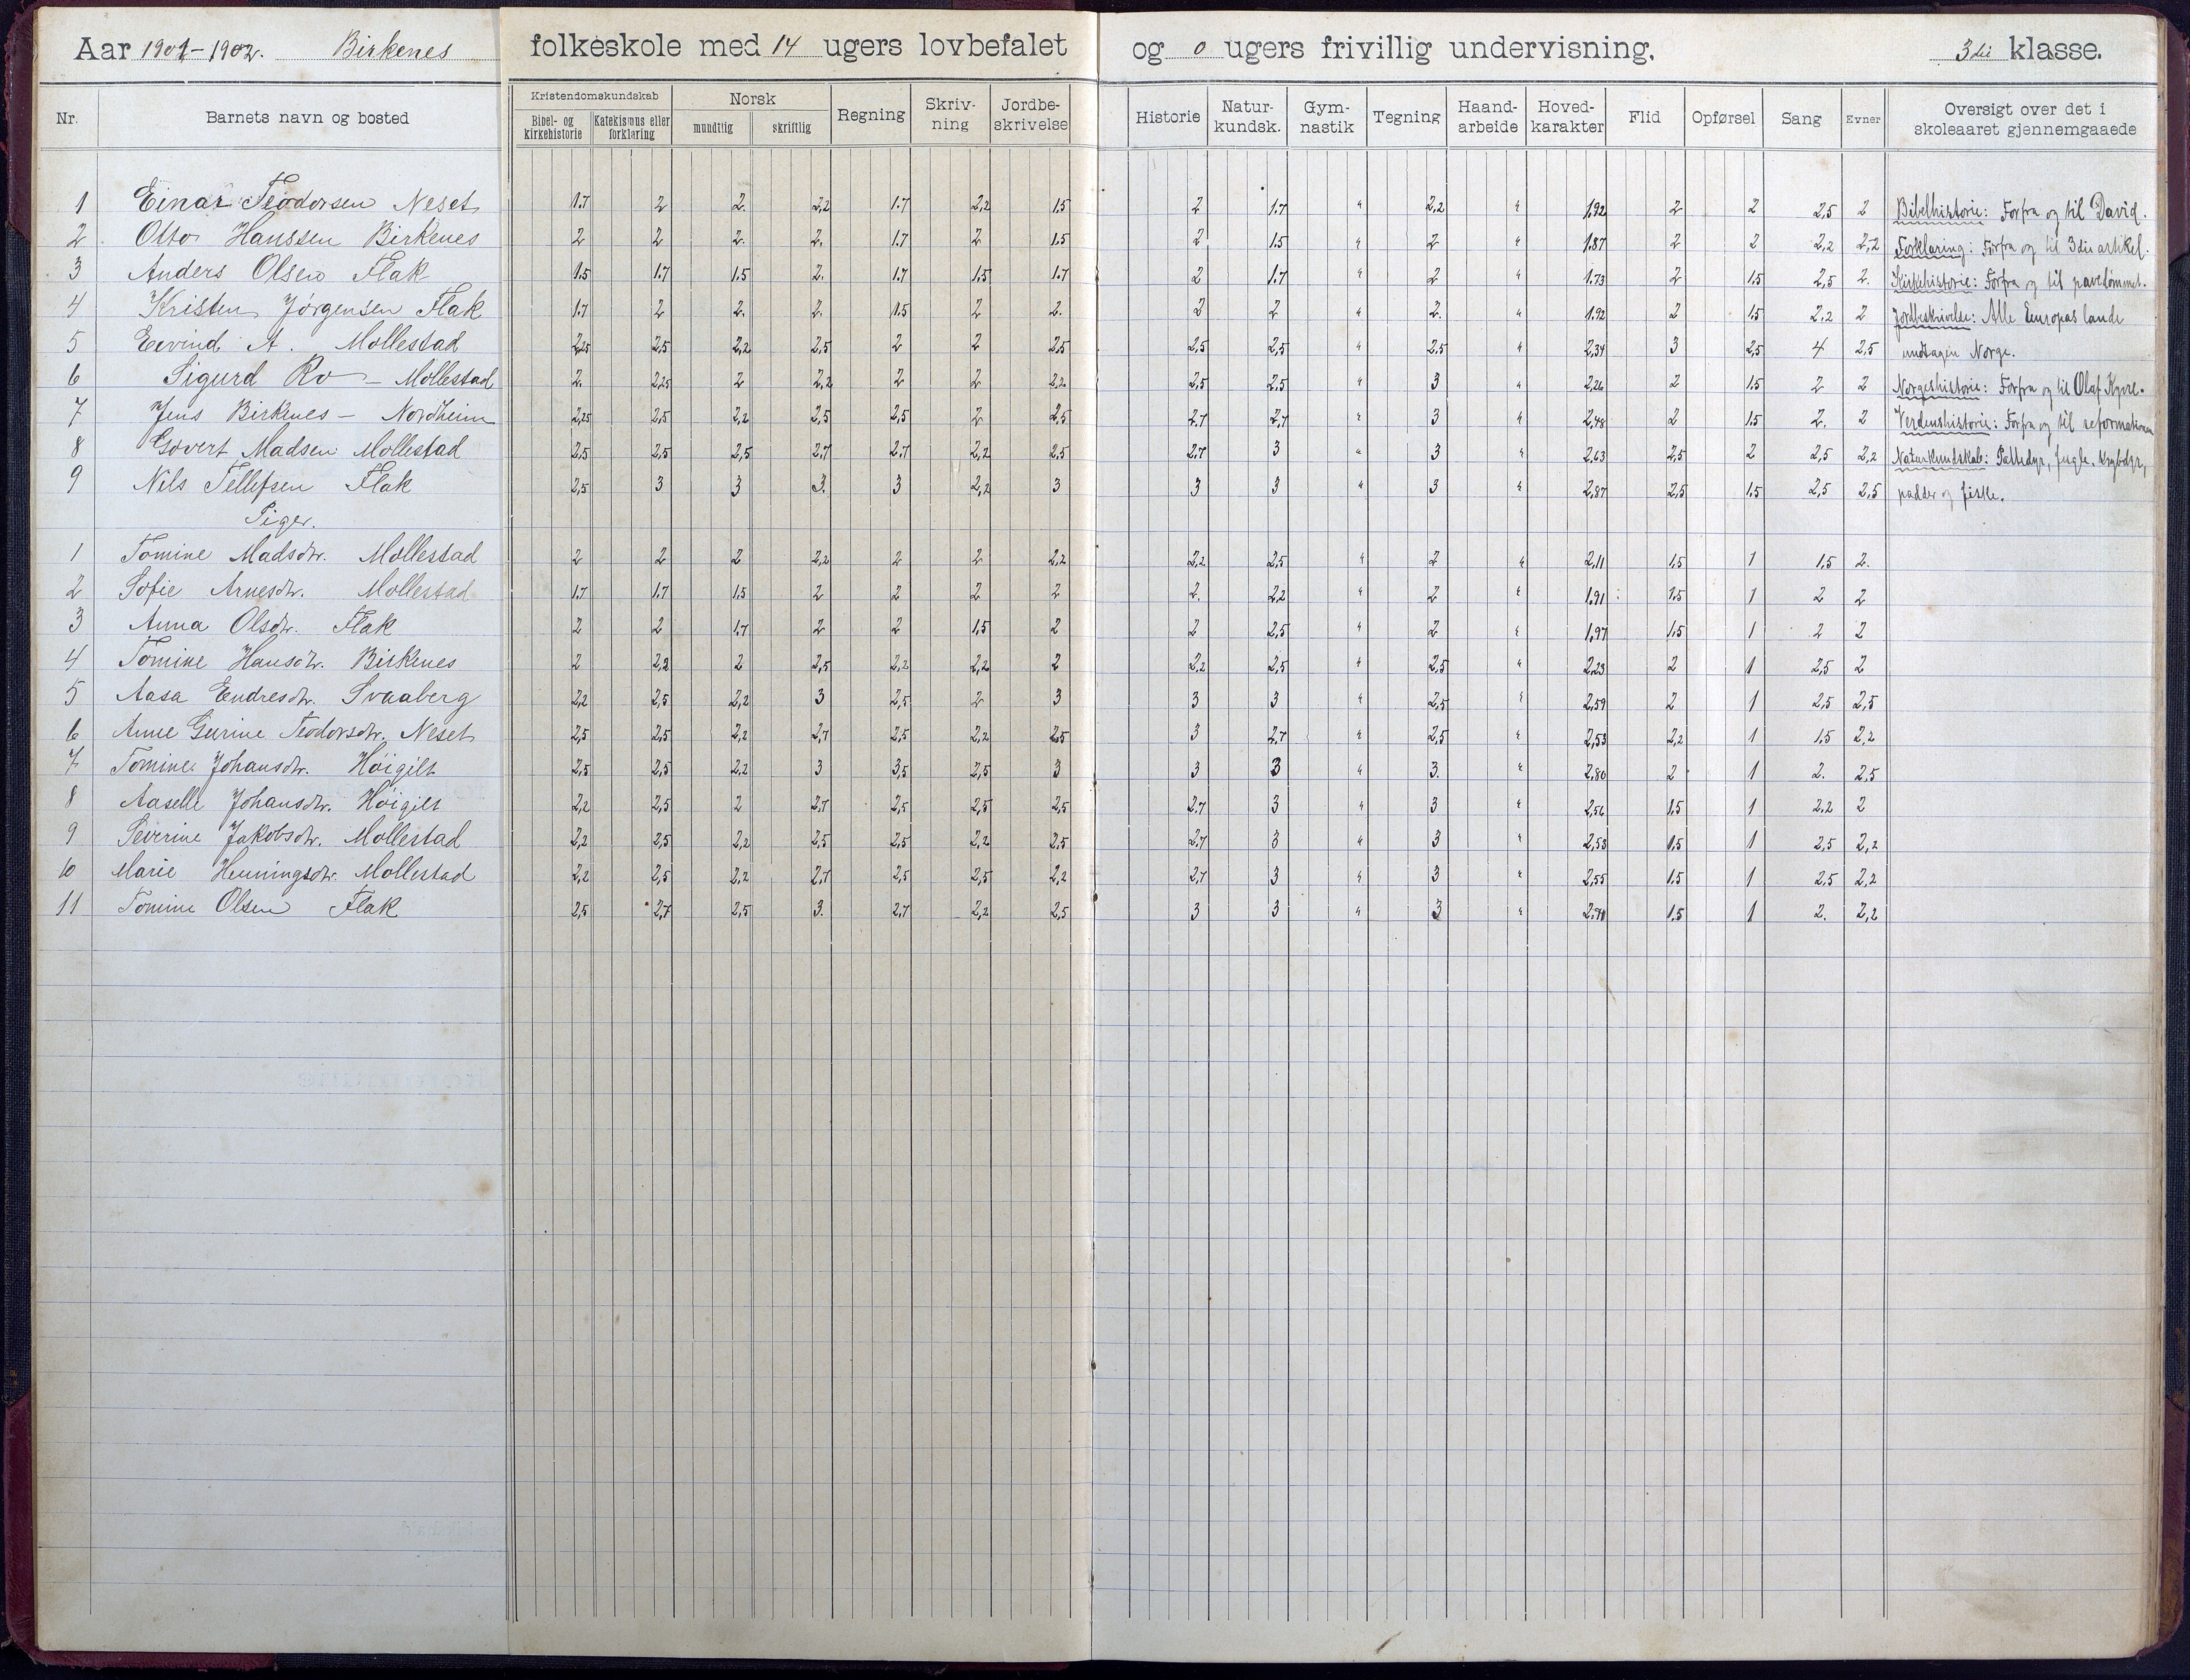 Aar 1901-1902. Birkenes folkeskole med 14 ugers lovbefalet og 0 ugers frivillig undervisning. 3die klasse.
Nr. Barnets navn og bosted Kristendomskundskab Bibel- og kirkehistorie Katekismus eller forklaring Norsk mundtlig skriftlig Regning Skriv-ning Jordbe-skrivelse Historie Natur-kundsk. Gym-nastik Tegning Haand-arbeide Hoved-karakter Flid Opførsel Sang Evner Oversigt over det i skoleaaret gjennemgaaede
1 Einar Teodorsen Neset 1.7 2 2. 2,2 1.7 2,2 1.5 2 1.7 " 2,2 " 1.92 2 2 2,5 2 Bibelhistorie: Forfra og til David.
2 Otto Hanssen Birkenes 2 2 2. 2. 1.7 2 1.5 2 1.5 " 2 " 1.87 2 2 2,2 2,2 Forklaring: Forfra og til 3die artikel.
3 Anders Olsen Flak 1.5 1.7 1.5 2. 1.7 1.5 1.7 2 1.7 " 2 " 1.73 2 1.5 2,5 2. Kirkehistorie: Forfra og til pavedømmet.
4 Kristen Jørgensen Flak 1.7 2 2. 2. 1.5 2 2. 2 2 " 2. " 1.92 2 1.5 2,2 2 Jordbeskrivelse: Alle Europas lande
5 Eivind A. Mollestad 2,25 2,5 2,2 2,5 2 2 2,5 2,5 2,5 " 2,5 " 2,34 3 2,5 4 2,5 undtagen Norge.
6 Sigurd Ro - Mollestad 2. 2,25 2 2,2 2 2 2,2 2,5 2,5 " 3 " 2,26 2 1.5 2 2 Norgeshistorie: Forfra og til Olaf Kyrre.
7 Jens Birkenes - Nordheim 2,25 2,5 2,2 2,5 2,5 2 2,5 2,7 2,7 " 3 " 2,48 2 1.5 2. 2 Verdenshistorie: Forfra og til reformationen
8 Govert Madsen Mollestad 2,5 2,5 2,5 2,7 2,7 2,2 2,5 2,7 3 " 3 " 2,63 2,5 2 2,5 2,2 Naturkundskab: Pattedyr, fugle, krybdyr,
9 Nils Tellefsen Flak 2,5 3 3 3. 3 2,2 3 3 3 " 3 " 2,87 2,5 1.5 2,5 2,5 padder og fiske.
Piger.
1 Tomine Madsdtr. Mollestad 2 2 2 2,2 2 2 2,2 2,2 2,5 " 2 " 2,11 1.5 1 1.5 2.
2 Sofie Arnesdtr. Mollestad 1.7 1.7 1.5 2 2 2 2 2. 2,2 " 2 " 1.91 1.5 1 2 2
3 Anna Olsdtr. Flak 2 2 1.7 2 2 1,5 2 2 2,5 " 2 " 1.97 1.5 1 2 2
4 Tomine Hansdtr. Birkenes 2 2,2 2 2,5 2,2 2,2 2 2,2 2,5 " 2,5 " 2,23 2 1 2,5 2
5 Aasa Endresdtr. Svaaberg 2,2 2,5 2,2 3 2,5 2 3 3 3 " 2,5 " 2,59 2 1 2,5 2,5
6 Anne Gurine Teodorsdtr. Neset 2,5 2,5 2,2 2,7 2,5 2,2 2,5 3 2,7 " 2,5 " 2,53 2,2 1 1.5 2,2
7 Tomine Johansdtr. Høigilt 2,5 2,5 2,2 3 3,5 2,5 3 3 3 " 3. " 2,80 2 1 2. 2,5
8 Aaselle Johansdtr. Høigilt 2,2 2,5 2 2,7 2,5 2,5 2,5 2,7 3 " 3 " 2,56 1.5 1 2,2 2
9 Severine Jakobsdtr. Mollestad 2,2 2,5 2,2 2,5 2,5 2,2 2,5 2,7 3 " 3 " 2,53 1.5 1 2,5 2,2
10 Marie Henningsdtr. Mollestad 2,2 2,5 2,2 2,7 2,5 2,5 2,2 2,7 3 " 3 " 2,55 1.5 1 2,5 2,2
11 Tomine Olsen Flak 2,5 2,7 2,5 3. 2,7 2,2 2,5 3 3 " 3 " 1.5 1 2. 2,2